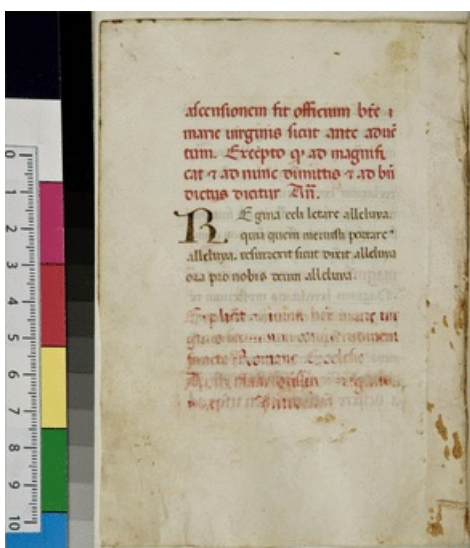 0 1 2 3 4 5 6 7 8 9 10
ascensionem fit officium bt̄e
marie virginis sicut ante aduē
tum. Excepto q̄ ad magnifi
cat ⁊ ad nunc dimittis ⁊ ad bn̄
dictus dicitur An̄.
Regina celi letare alleluya.
quia quem meruisti portare
alleluya. resurrexit sicut dixit alleluya
ora pro nobis deum alleluya
Explicit marie vir
ginis
Romane Ecclesie